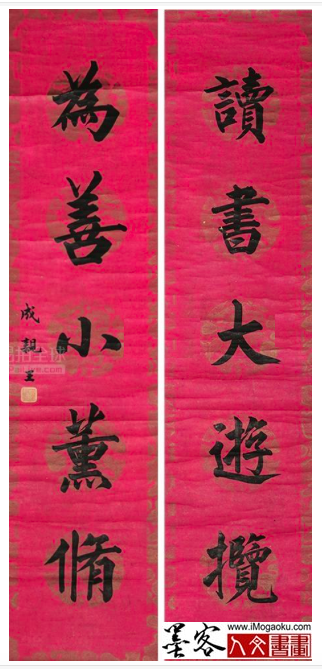 讀書大遊攬
為善小薰脩
成親王
www.iMogaoku.com
墨客
人文書畫